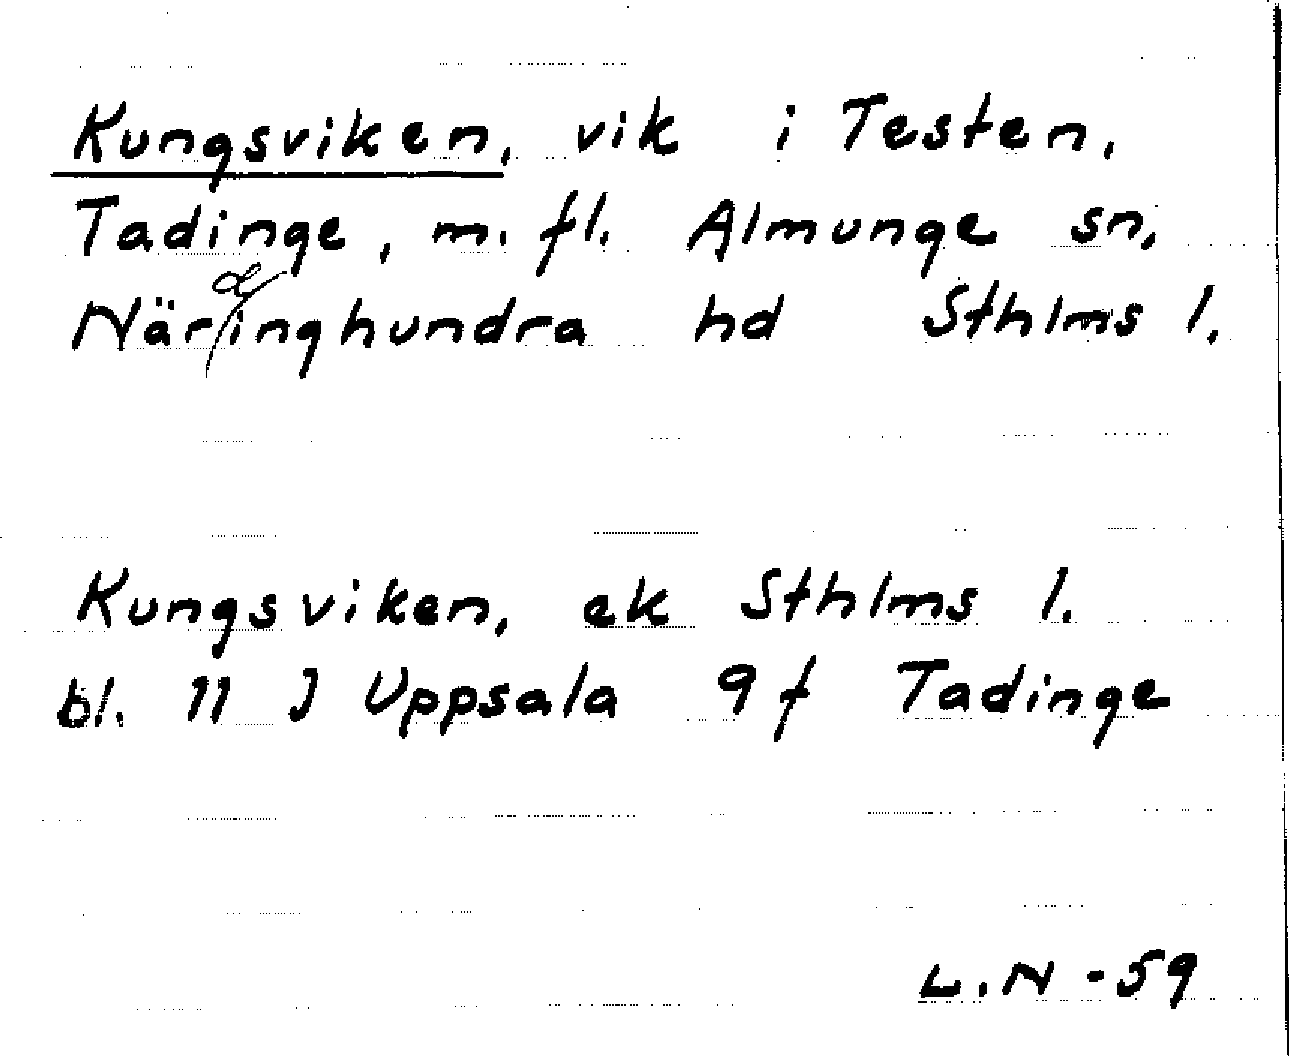 Kungsviken, vik i Testen,
Tadinge, m. fl. Almunge sn,
Näringhundra hd Sthlms l.
Kungsviken, ek Sthlms l.
bl. 11 J Uppsala 9 f Tadinge
L. N - 59